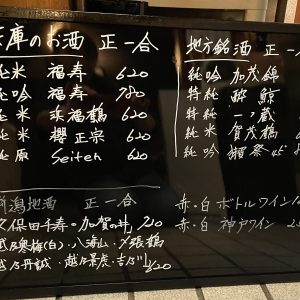 庫のお酒 正一合
純米 福寿 620
純吟 福寿 780
純米 浜福鶴 620
純米 櫻正宗 620
純原 Seiten 620
地方銘酒 正一
純吟 加茂錦
特純 酔鯨
特純 一ノ蔵
純米 賀茂鶴
純吟 獺祭
潟地酒 正一合
久保田千寿・加賀の井
越乃寒梅(白)・八海山・〆張鶴
越乃丹誠・越乃景虎・吉乃川
赤・白 ボトルワイン
赤・白 神戸ワイン